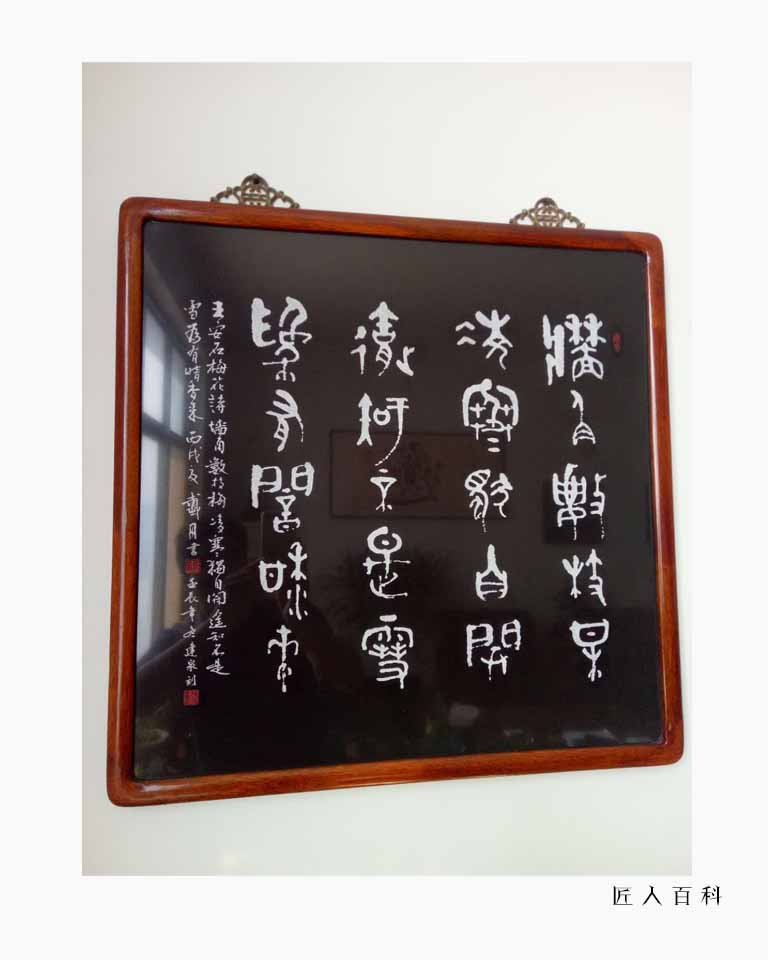 牆角數枝某
凌寒獨自開
遙知不是雪
為有闇香來
王安石梅花詩墻角數枝梅凌寒獨自開遙知不是
雪為有暗香來 丙戌夏 戴月書 壬辰年冬建泉刻
匠人百科